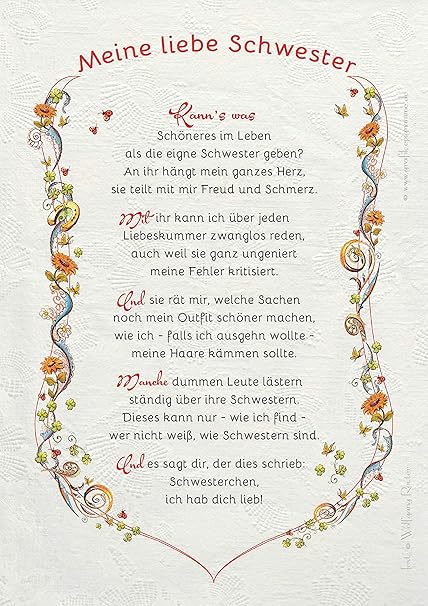 Meine liebe Schwester
Kann's was
Schöneres im Leben
als die eigne Schwester geben?
An ihr hängt mein ganzes Herz,
sie teilt mit mir Freud und Schmerz.
Mit ihr kann ich über jeden
Liebeskummer zwanglos reden,
auch weil sie ganz ungeniert
meine Fehler kritisiert.
Und sie rät mir, welche Sachen
noch mein Outfit schöner machen,
wie ich - falls ich ausgehn wollte -
meine Haare kämmen sollte.
Manche dummen Leute lästern
ständig über ihre Schwestern.
Dieses kann nur - wie ich find -
wer nicht weiß, wie Schwestern sind.
Und es sagt dir, der dies schrieb:
Schwesterchen,
ich hab dich lieb!